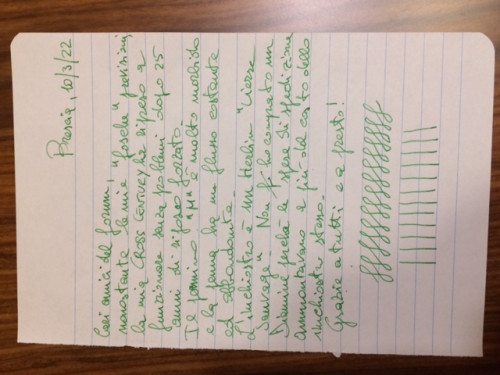 Brescia, 10/3/22
Cari amici del forum,
nonostante le mie "fosche" previsioni
la mia Cross Century ha ripreso a
funzionare senza problemi dopo 25
anni di riposo forzato.
Il pennino "M" è molto morbido
e la penna ha un flusso costante
ed abbondante.
L'inchiostro è un Herbin "Lierre
Sauvage". Non ho comprato un
Diamine perchè le spese di spedizione
ammontavano a più del costo dello
inchiostro stesso.
Grazie a tutti e a presto!